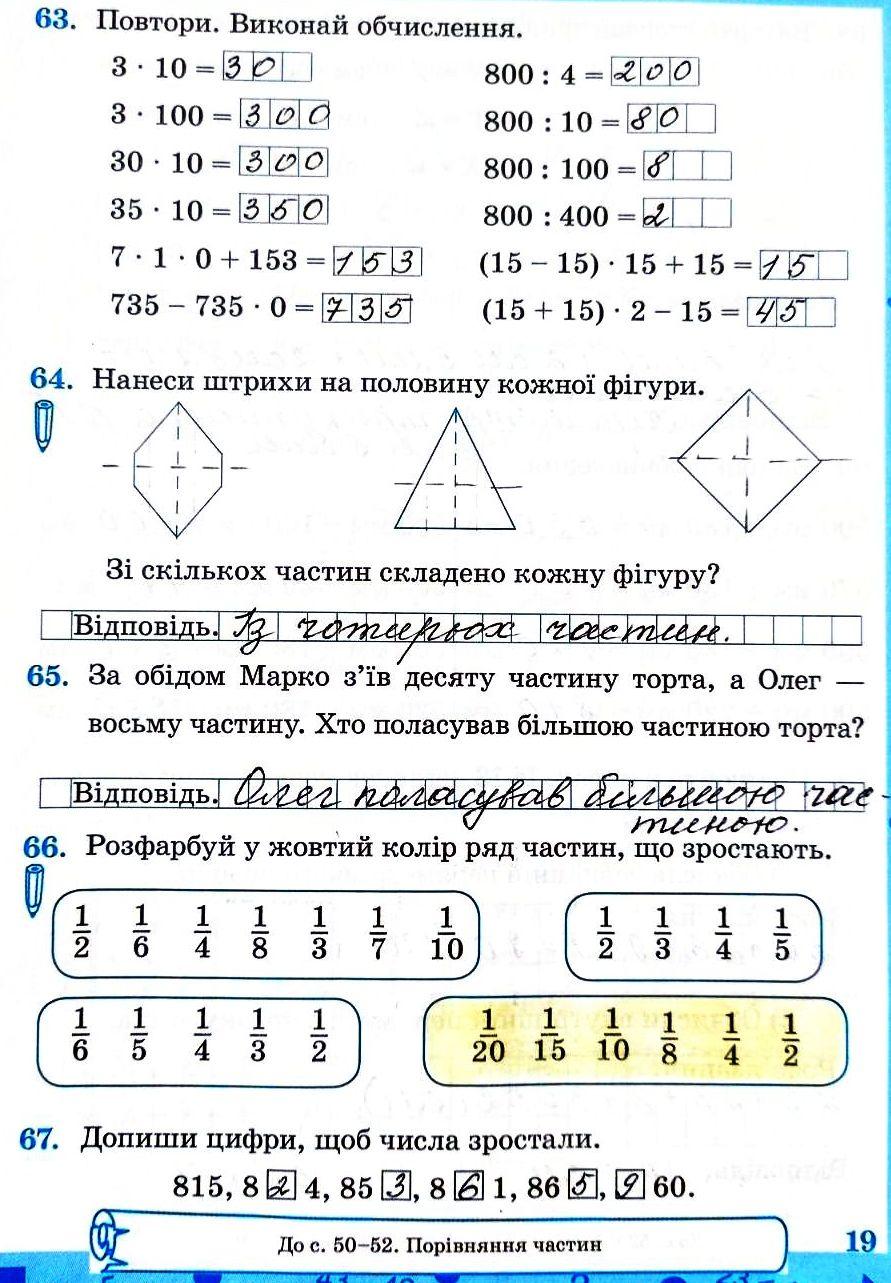 63. Повтори. Виконай обчислення.
3 · 10 = 30
800 : 4 = 200
3 · 100 = 300
800 : 10 = 80
30 · 10 = 300
800 : 100 = 8
35 · 10 = 350
800 : 400 = 2
7 · 1 · 0 + 153 = 153
(15 − 15) · 15 + 15 = 15
735 − 735 · 0 = 735
(15 + 15) · 2 − 15 = 45
64. Нанеси штрихи на половину кожної фігури.
Зі скількох частин складено кожну фігуру?
Відповідь. Із чотирьох частин.
65. За обідом Марко з’їв десяту частину торта, а Олег —
восьму частину. Хто поласував більшою частиною торта?
Відповідь. Олег поласував більшою час-
тиною.
66. Розфарбуй у жовтий колір ряд частин, що зростають.
1/2 1/6 1/4 1/8 1/3 1/7 1/10
1/2 1/3 1/4 1/5
1/6 1/5 1/4 1/3 1/2
1/20 1/15 1/10 1/8 1/4 1/2
67. Допиши цифри, щоб числа зростали.
815, 8 2 4, 85 3, 8 6 1, 86 5, 9 60.
До с. 50–52. Порівняння частин
19